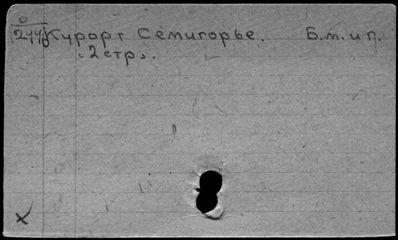 Курорт Семигорье. Б.м. и г.
2 стр.